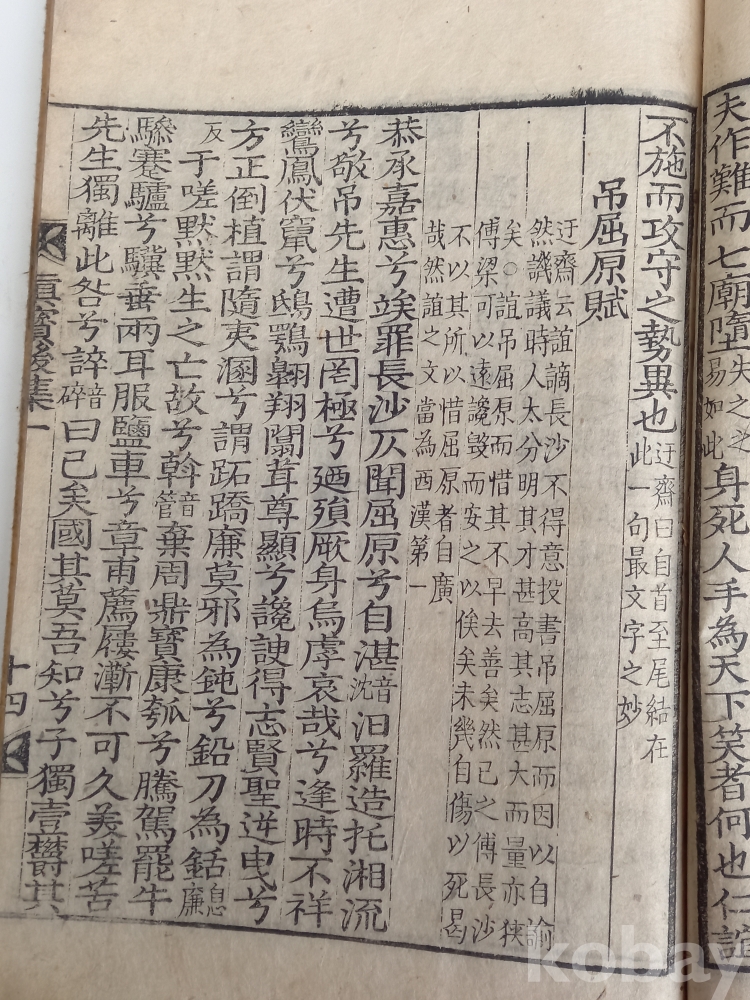 夫作難而七廟隳失之之易如此身死人手為天下笑者何也仁誼
不施而攻守之勢異也迂齋曰自首至尾結在此一句最文字之妙
吊屈原賦
迂齋云誼謫長沙不得意投書吊屈原而因以自諭
然譏議時人太分明其才甚高其志甚大而量亦狹
矣○誼吊屈原而惜其不早去善矣然已之傅長沙
傅梁可以遠讒毀而安之以俟矣未幾自傷以死曷
不以其所以惜屈原者自廣
哉然誼之文當為西漢第一
恭承嘉惠兮竢罪長沙仄聞屈原兮自湛音沈汨羅造托湘流
兮敬吊先生遭世罔極兮廼殞厥身烏虖哀哉兮逢時不祥
鸞鳳伏竄兮鴟鶚翱翔闒茸尊顯兮讒諛得志賢聖逆曳兮
方正倒植謂隨夷溷兮謂跖蹻廉莫邪為鈍兮鉛刀為銛息廉
反于嗟默默生之亡故兮斡音管棄周鼎寶康瓠兮騰駕罷牛
驂蹇驢兮驥垂兩耳服鹽車兮章甫薦屨漸不可久嗟苦
先生獨離此咎兮誶音碎曰已矣國其莫吾知兮子獨壹鬱其
真寶後集一 十四
kobay